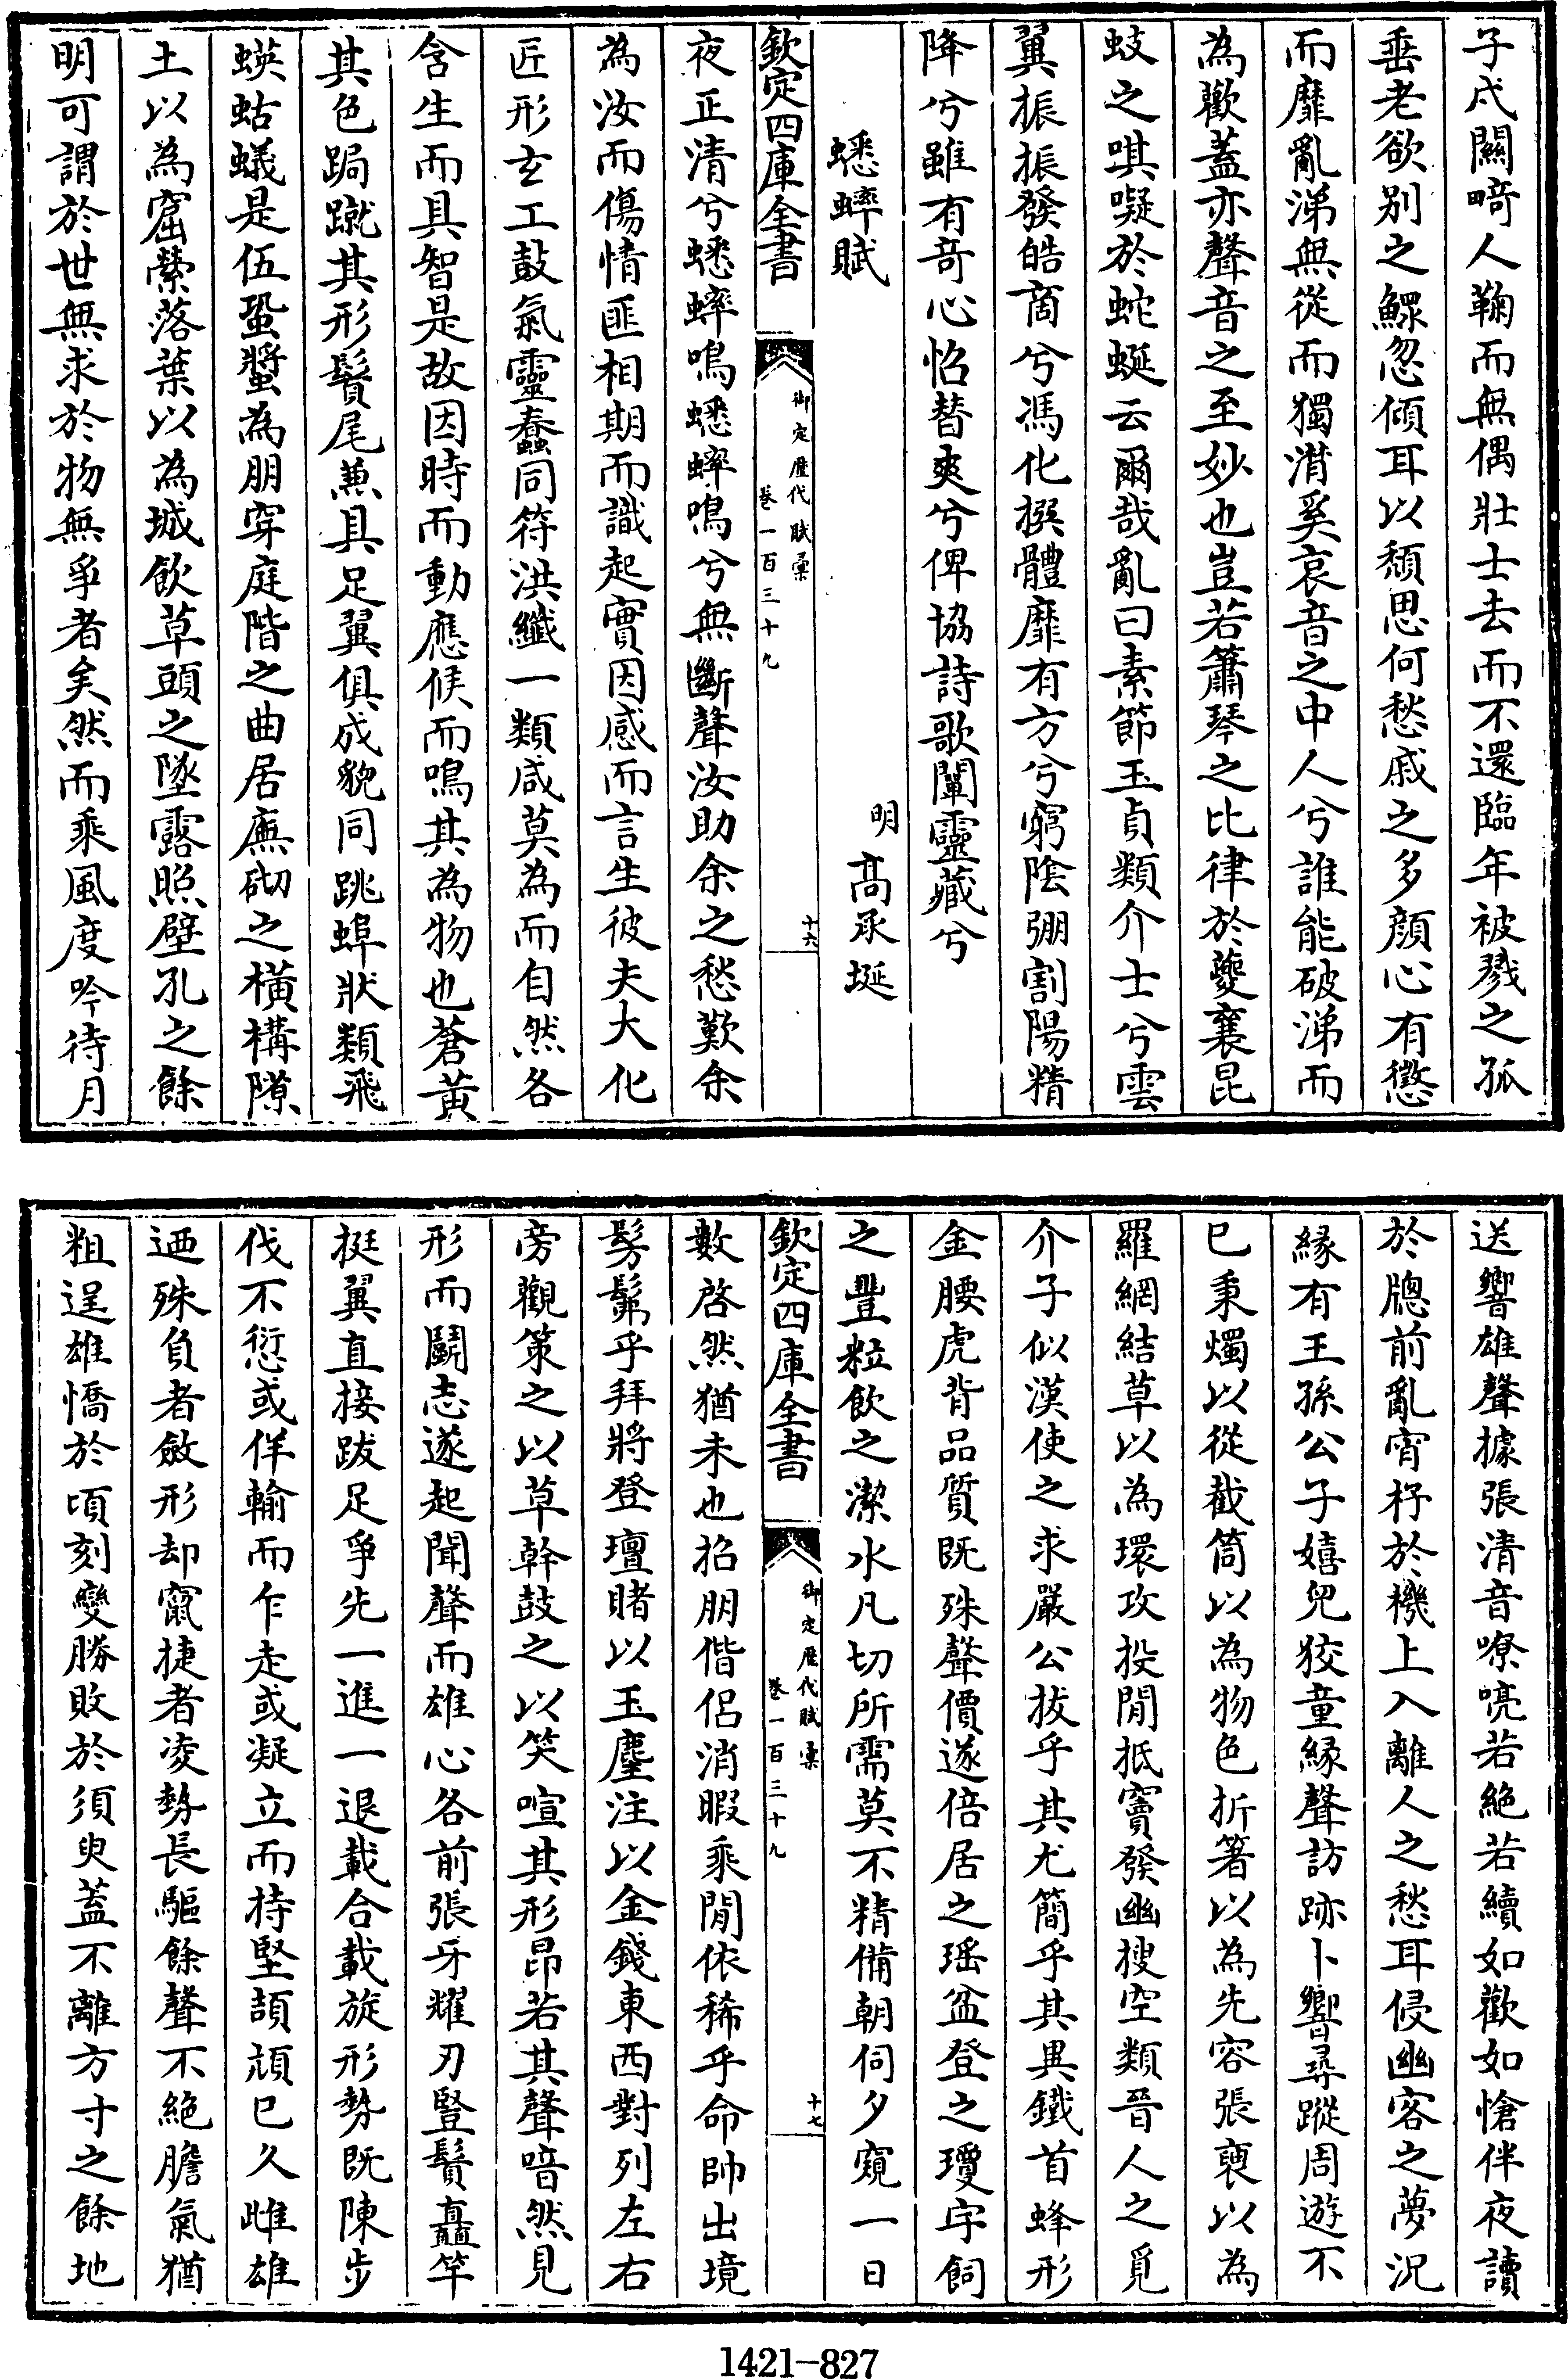 子戍闗畸人鞠而無偶壯士去而不還臨年被戮之孤
垂老欲别之鰥忽傾耳以頽思何愁戚之多顔心有懲
而靡亂涕無從而獨潸奚哀音之中人兮誰能破涕而
為歡蓋亦聲音之至妙也豈若簫琴之比律於夔襄昆
蚑之唭嚈於蛇蜒云爾哉亂曰素節玉貞類介士兮雲
翼振振發皓商兮馮化撰體靡有方兮窮陰弸割陽精
降兮雖有奇心怊替爽兮俾協詩歌闡靈藏兮
蟋蟀賦
明 髙承埏
欽定四庫全書
御定歴代賦彙
卷一百三十九
十六
夜正清兮蟋蟀鳴蟋蟀鳴兮無斷聲汝助余之愁歎余
為汝而傷情匪相期而識起實因感而言生彼夫大化
匠形玄工鼓氣靈蠢同符洪纖一類咸莫為而自然各
含生而具智是故因時而動應候而鳴其為物也蒼黄
其色跼蹴其形鬚尾兼具足翼俱成貌同跳蜶狀類飛
蝧蛄蟻是伍蛩螿為朋穿庭階之曲居廡砌之横構隙
土以為窟縈落葉以為城飲草頭之墜露照壁孔之餘
明可謂於世無求於物無爭者矣然而乘風度吟待月
送響雄聲據張清音嘹喨若絶若續如歡如愴伴夜讀
於牕前亂宵杼於機上入離人之愁耳侵幽客之夢況
縁有王孫公子嬉兒狡童縁聲訪跡卜響尋蹤周遊不
已秉燭以從截筒以為物色折箸以為先容張裯以為
羅網結草以為環攻投閒抵竇發幽搜空類晉人之覓
介子似漢使之求嚴公拔乎其尤簡乎其異鐵首蜂形
金腰虎背品質既殊聲價遂倍居之瑶盆登之瓊宇飼
之豐粒飲之潔水凡切所需莫不精備朝伺夕窺一日
欽定四庫全書
御定歴代賦彙
卷一百三十九
十七
數啓然猶未也招朋偕侣消暇乘閒依稀乎命帥出境
髣髴乎拜將登壇賭以玉麈注以金錢東西對列左右
旁觀策之以草幹鼓之以笑喧其形昂若其聲喑然見
形而鬭志遂起聞聲而雄心各前張牙耀刃豎鬚矗竿
挺翼直接跋足爭先一進一退載合載旋形勢既陳步
伐不愆或佯輸而乍走或凝立而持堅頡頏已久雌雄
迺殊負者斂形却竄捷者凌勢長驅餘聲不絶膽氣猶
粗逞雄憍於頃刻變勝敗於須臾蓋不離方寸之餘地
1421-827